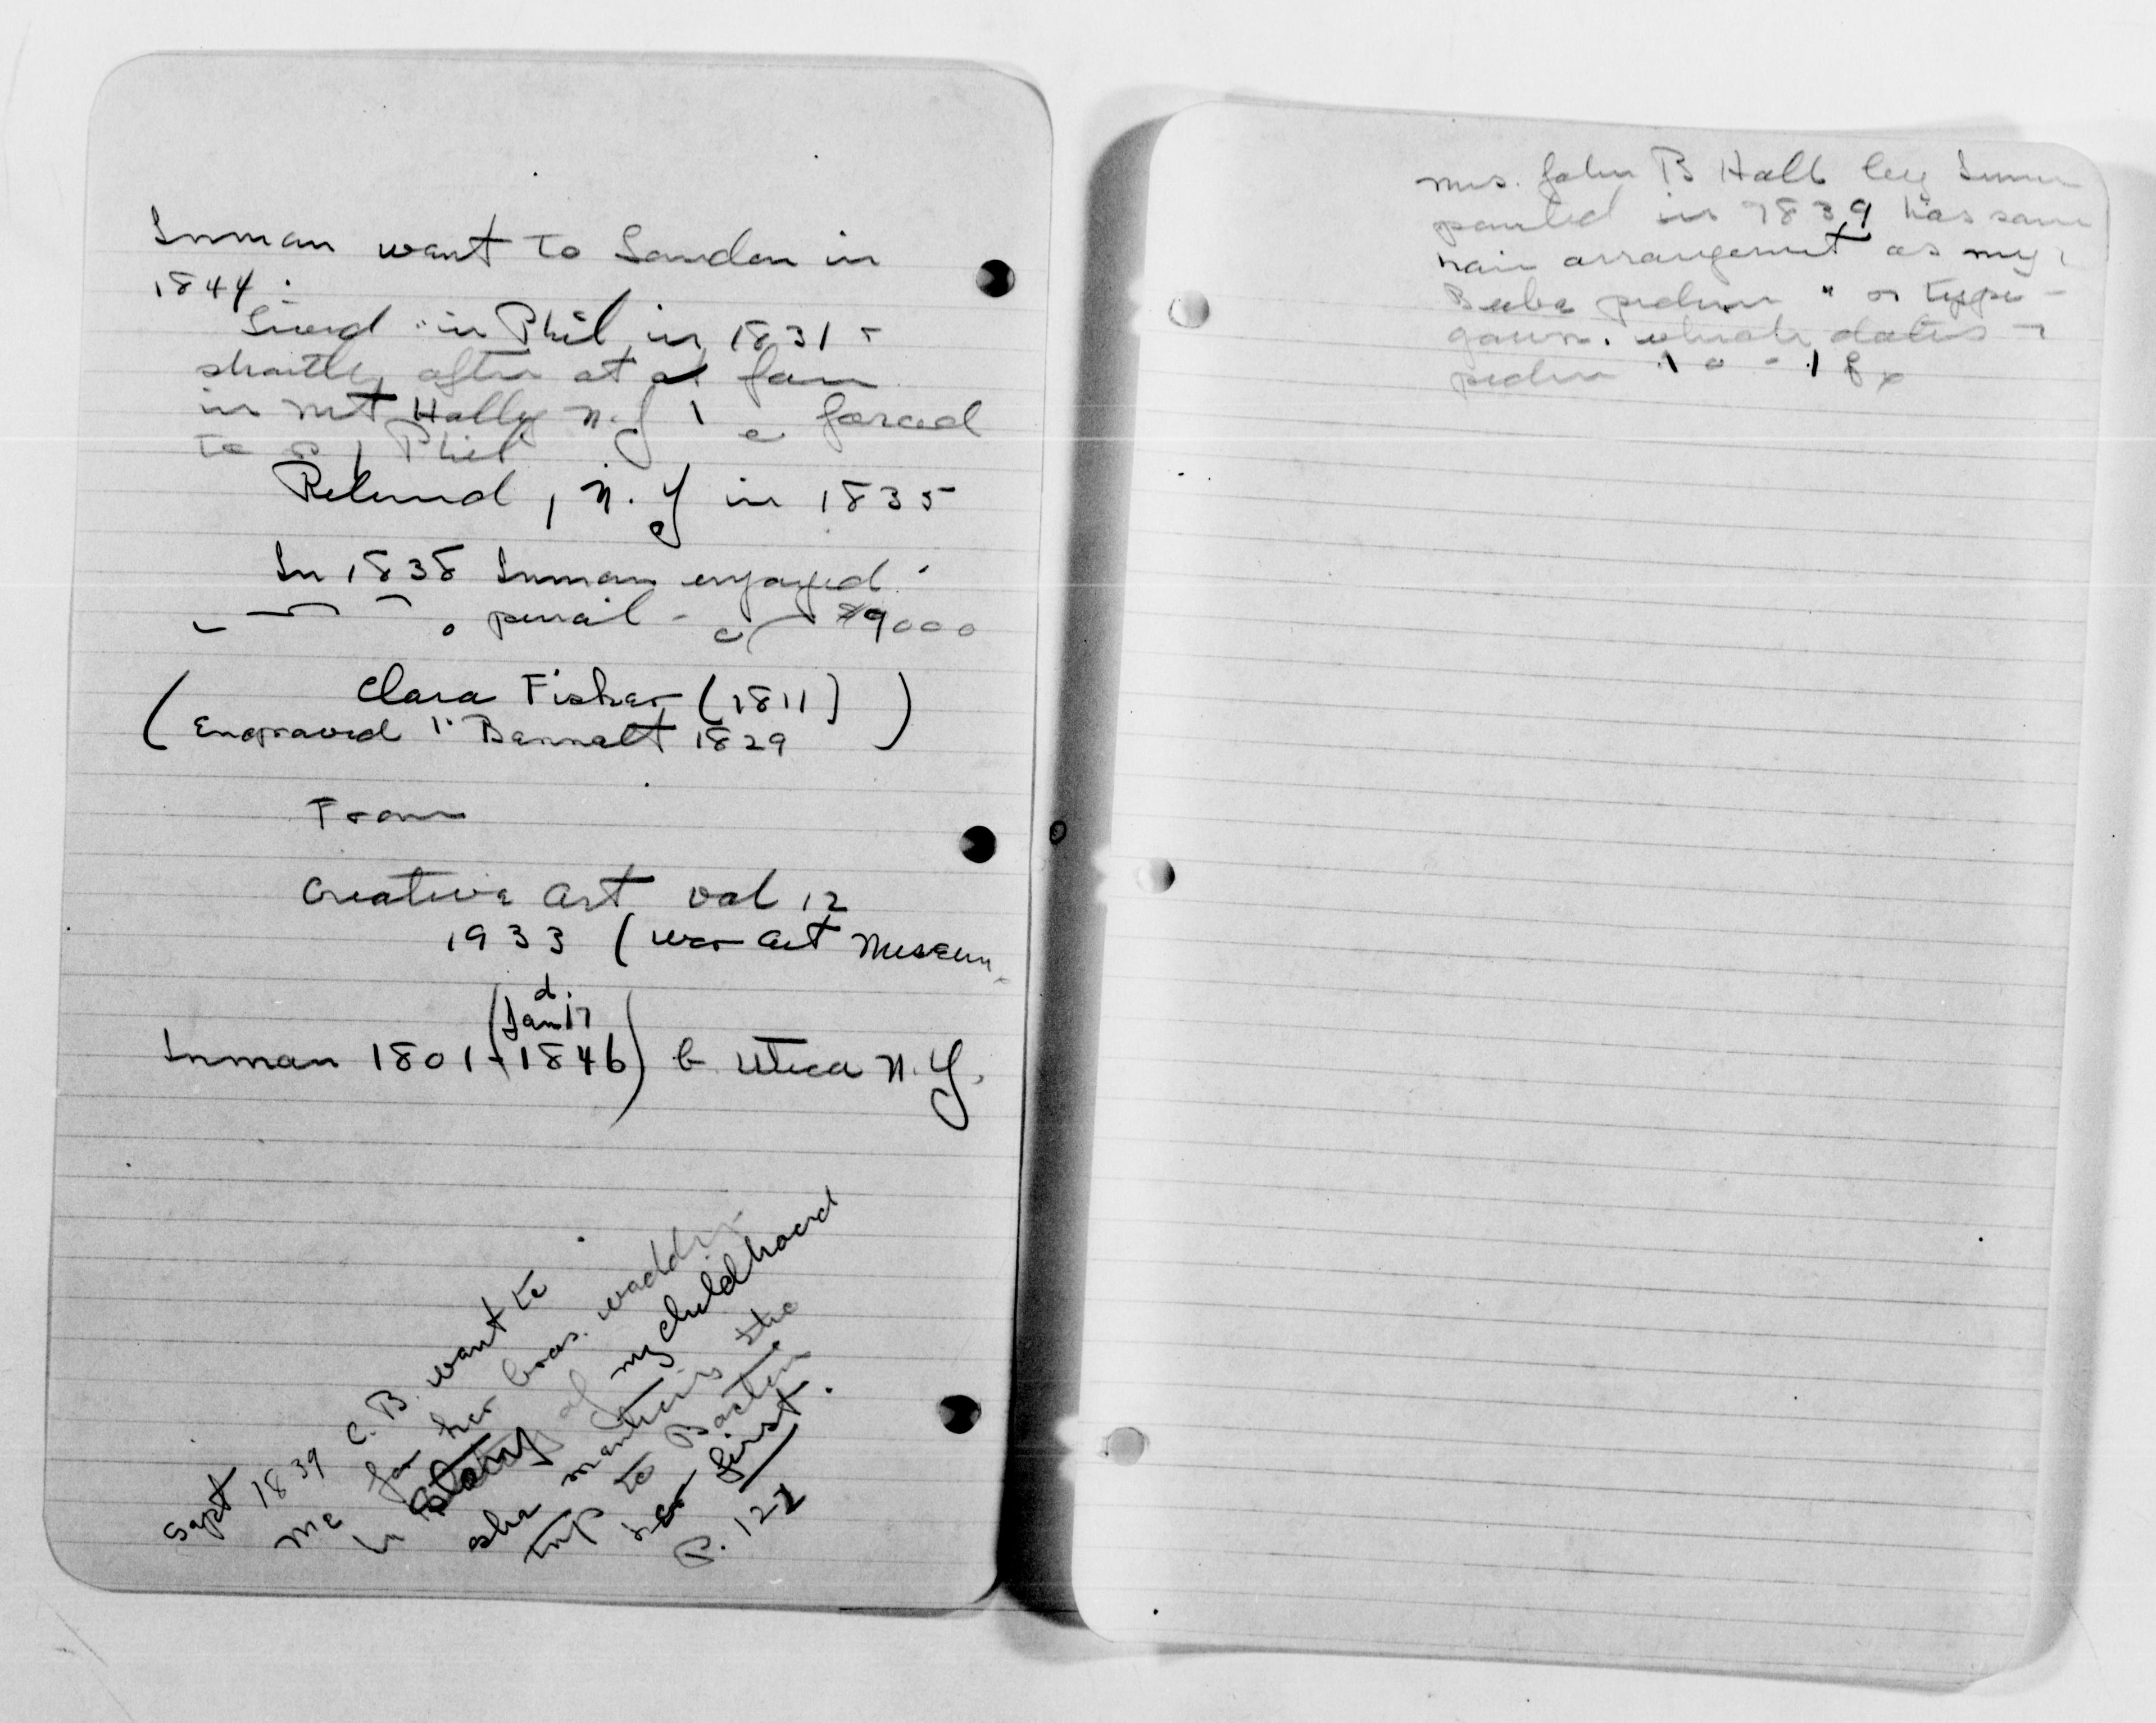 Inman went to London in
1844.
Lived in Phil in 1831 &
shortly after at a farm
in Mt Holly N.J forced
to Phil
Returned, N.Y in 1835
In 1838 Inman engaged
pencil $9000
Clara Fisher (1811)
(Engraved " Bennett 1829 )
From
Creative Art vol 12
1933 (wor Art Museum
d.
(Jan 17
Inman 1801-1846) b. Utica N.Y.
Sept 1839 C. B. went to
Me for her bros. wedding
In Story of my childhood
she mentions the
trip to Boston
her first.
P. 122
Mrs. John B Hall by Inman
painted in 1839 has same
hair arrangement as my
picture " or type
gown. which dates